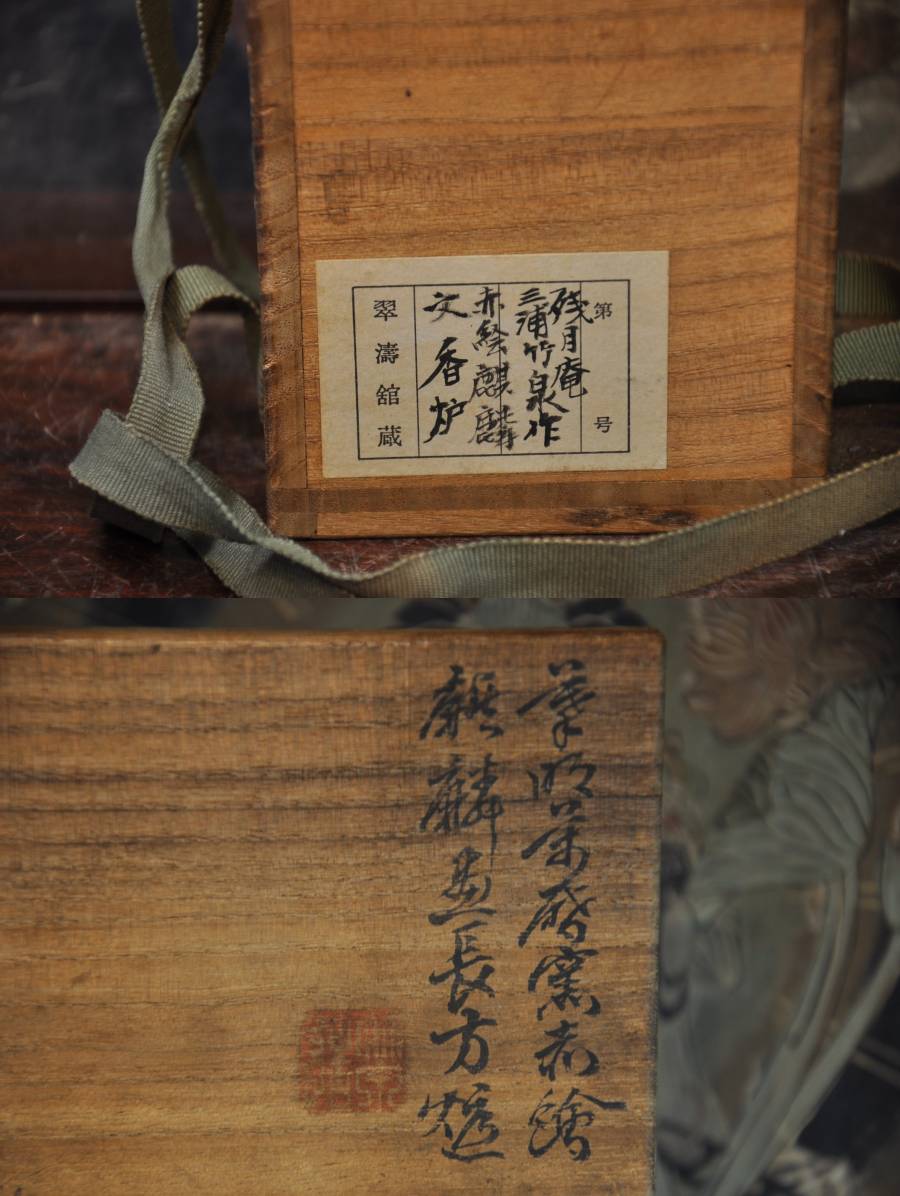 第 号
残月庵
三浦竹泉作
赤絵麒麟
文香炉
翠濤舘蔵
摹明萬曆窯赤繪
麒麟画長方爐